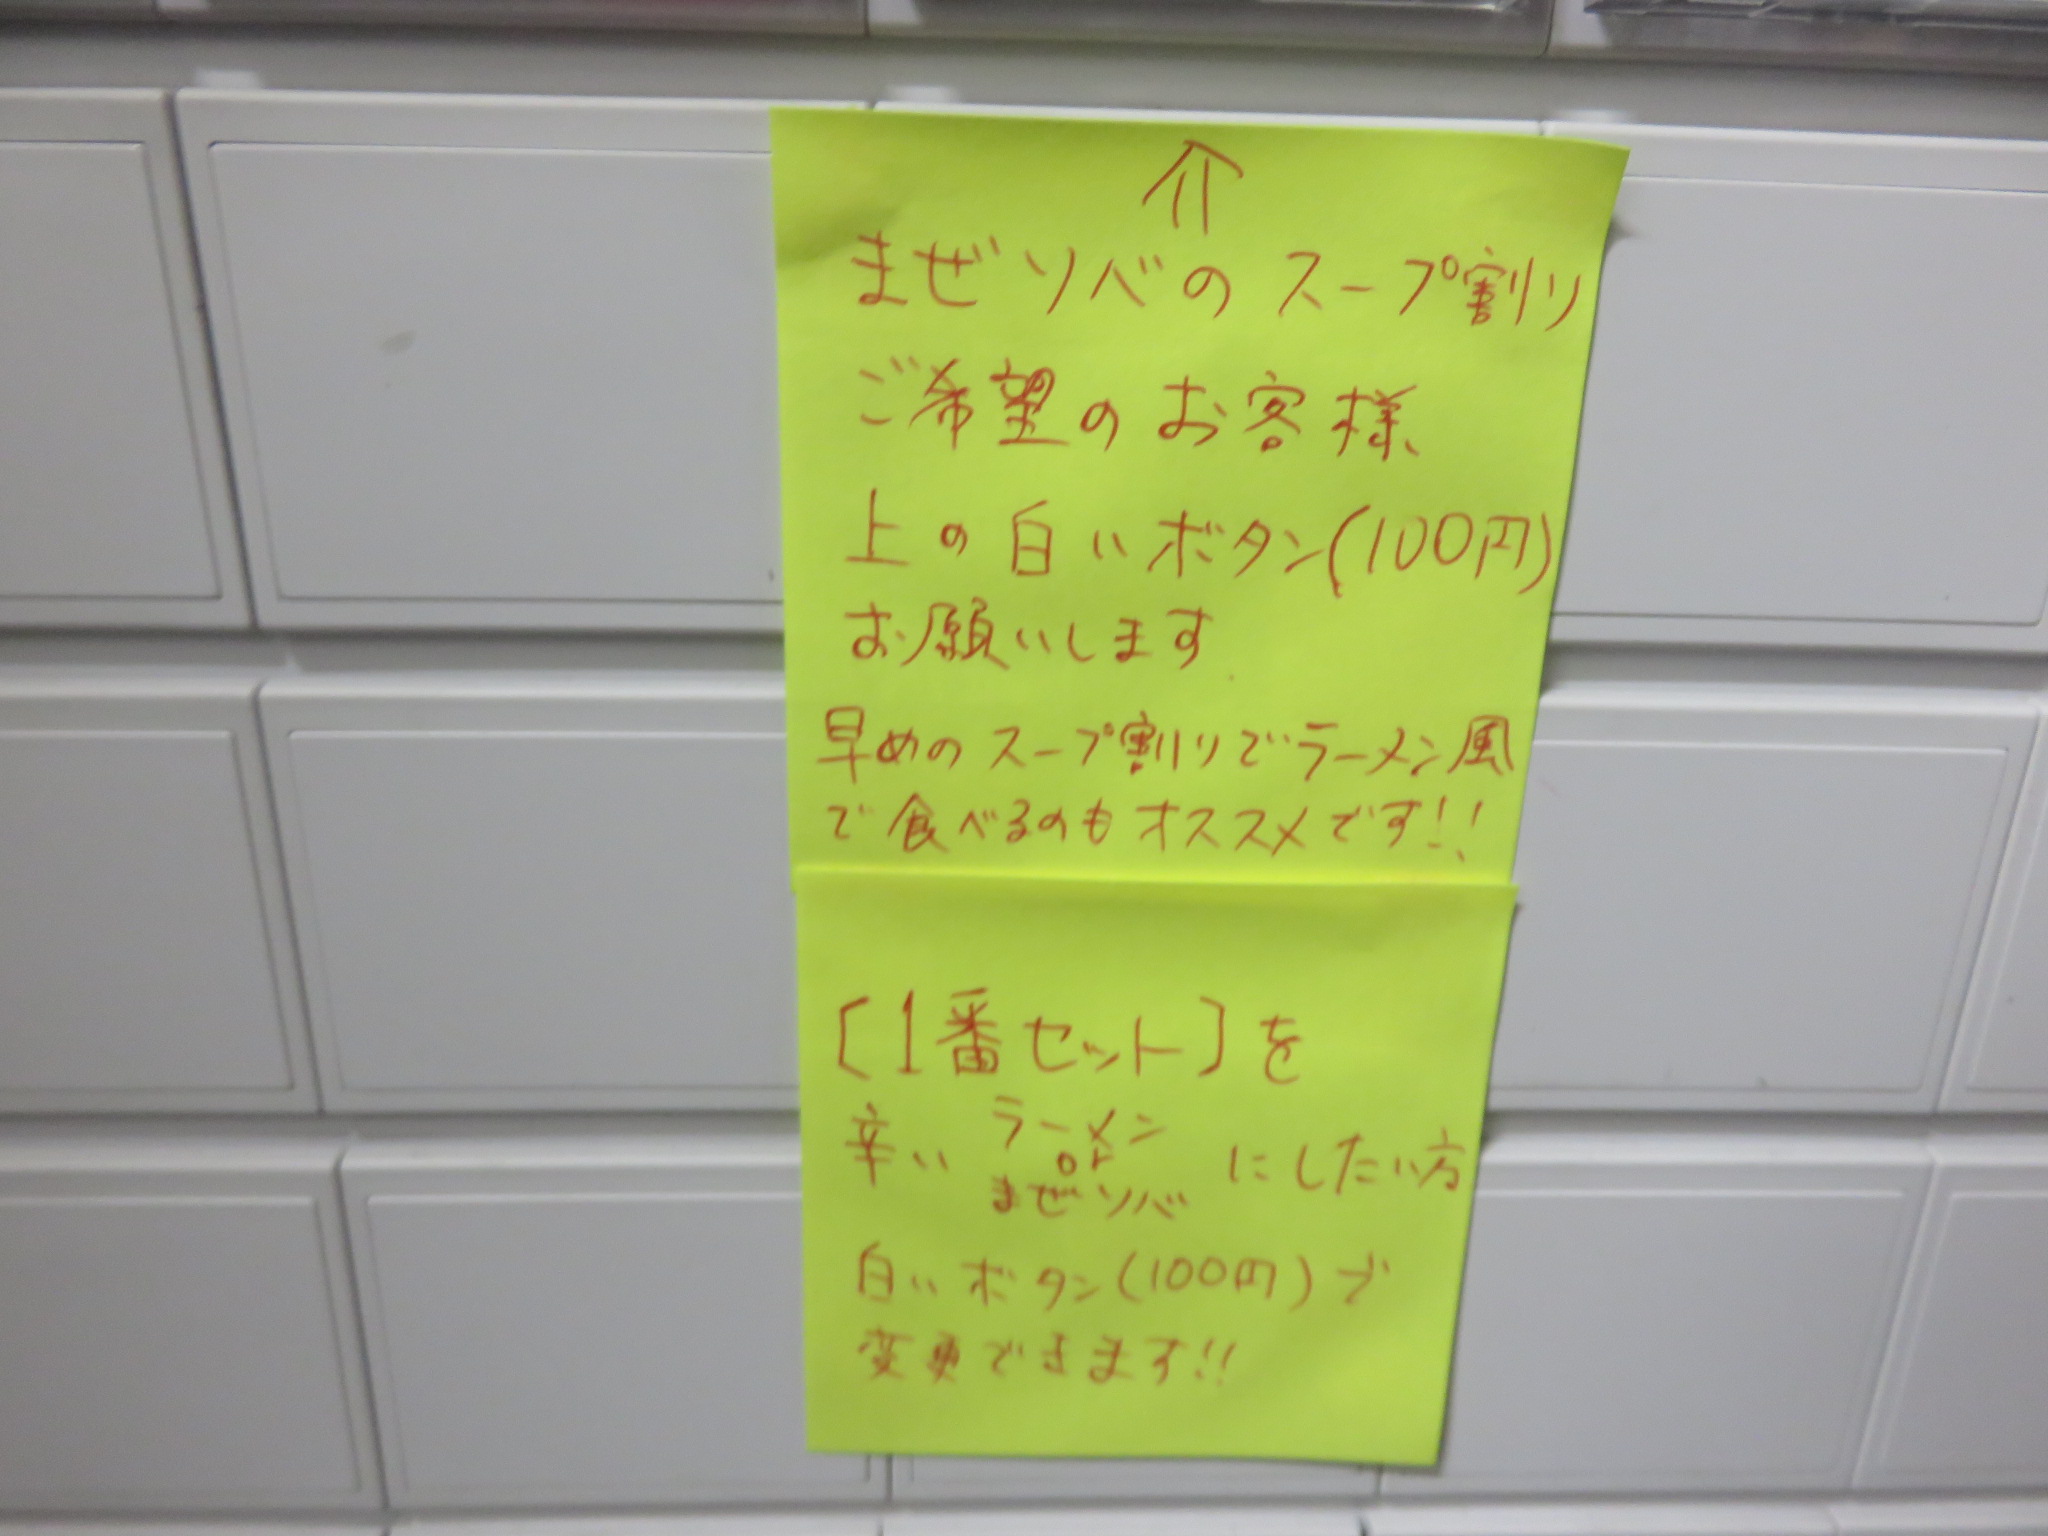 ⇑
まぜソバのスープ割り
ご希望のお客様、
上の白いボタン(100円)
お願いします
早めのスープ割りでラーメン風
で食べるのもオススメです!!
〔1番セット〕を
辛い ラーメン or まぜソバ にしたい方
白いボタン(100円)で
変更できます!!